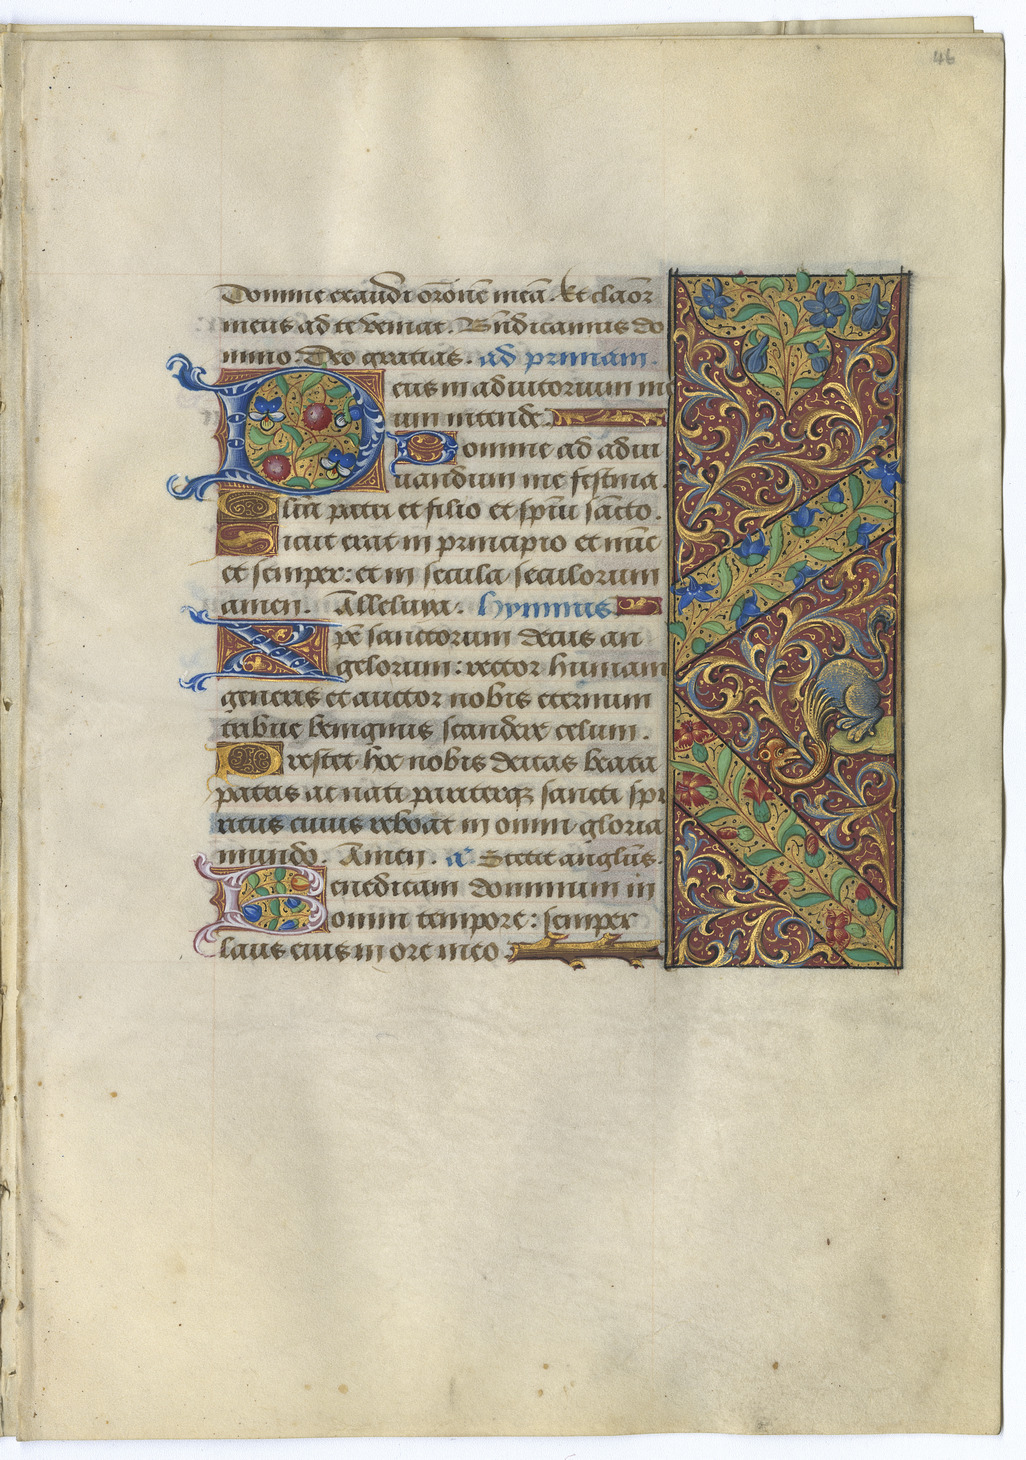 46
Domine exaudi orōnē meā. Et claōr
meus ad te veniat. Bn̄dicamus do
mino. Deo gratias. ad primam.
Deus in adiutorium me
um intende.
Domine ad adiu
uandum me festina.
Glīa patri et filio et spūi sācto.
Sicut erat in principio et nūc
et semper: et in secula seculorum
amen. Alleluya. hymnus
Xpē sanctorum decus an
gelorum: rector humani
generis et auctor nobis eternum
tribue benignus scandere celum.
Prestet hoc nobis deitas beata
patris ac nati pariterqȝ sancti spi
ritus cuius reboat in omni gloria
mundo. Amen. a Stetit anglūs.
Benedicam dominum in
omni tempore: semper
laus eius in ore meo.